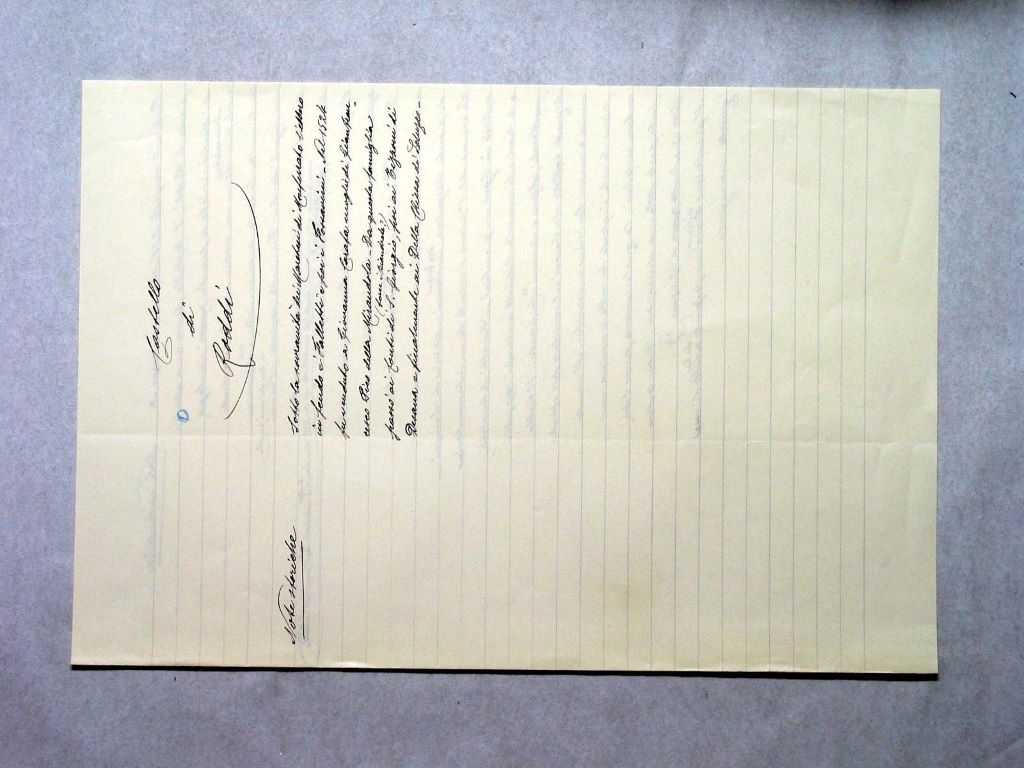 Castello
di
Roddi
Note storiche
Sotto la sovranità dei Marchesi di Monferrato l'ebbero
in feudo i Falletti e poi i - Nel 1526
fu venduto a Giovanna Carafa moglie di Gianfran-
cesco Pico della Mirandola - Da questa famiglia
passò ai Conti di S. Giorgio, poi ai di
e finalmente ai Della Chiesa di